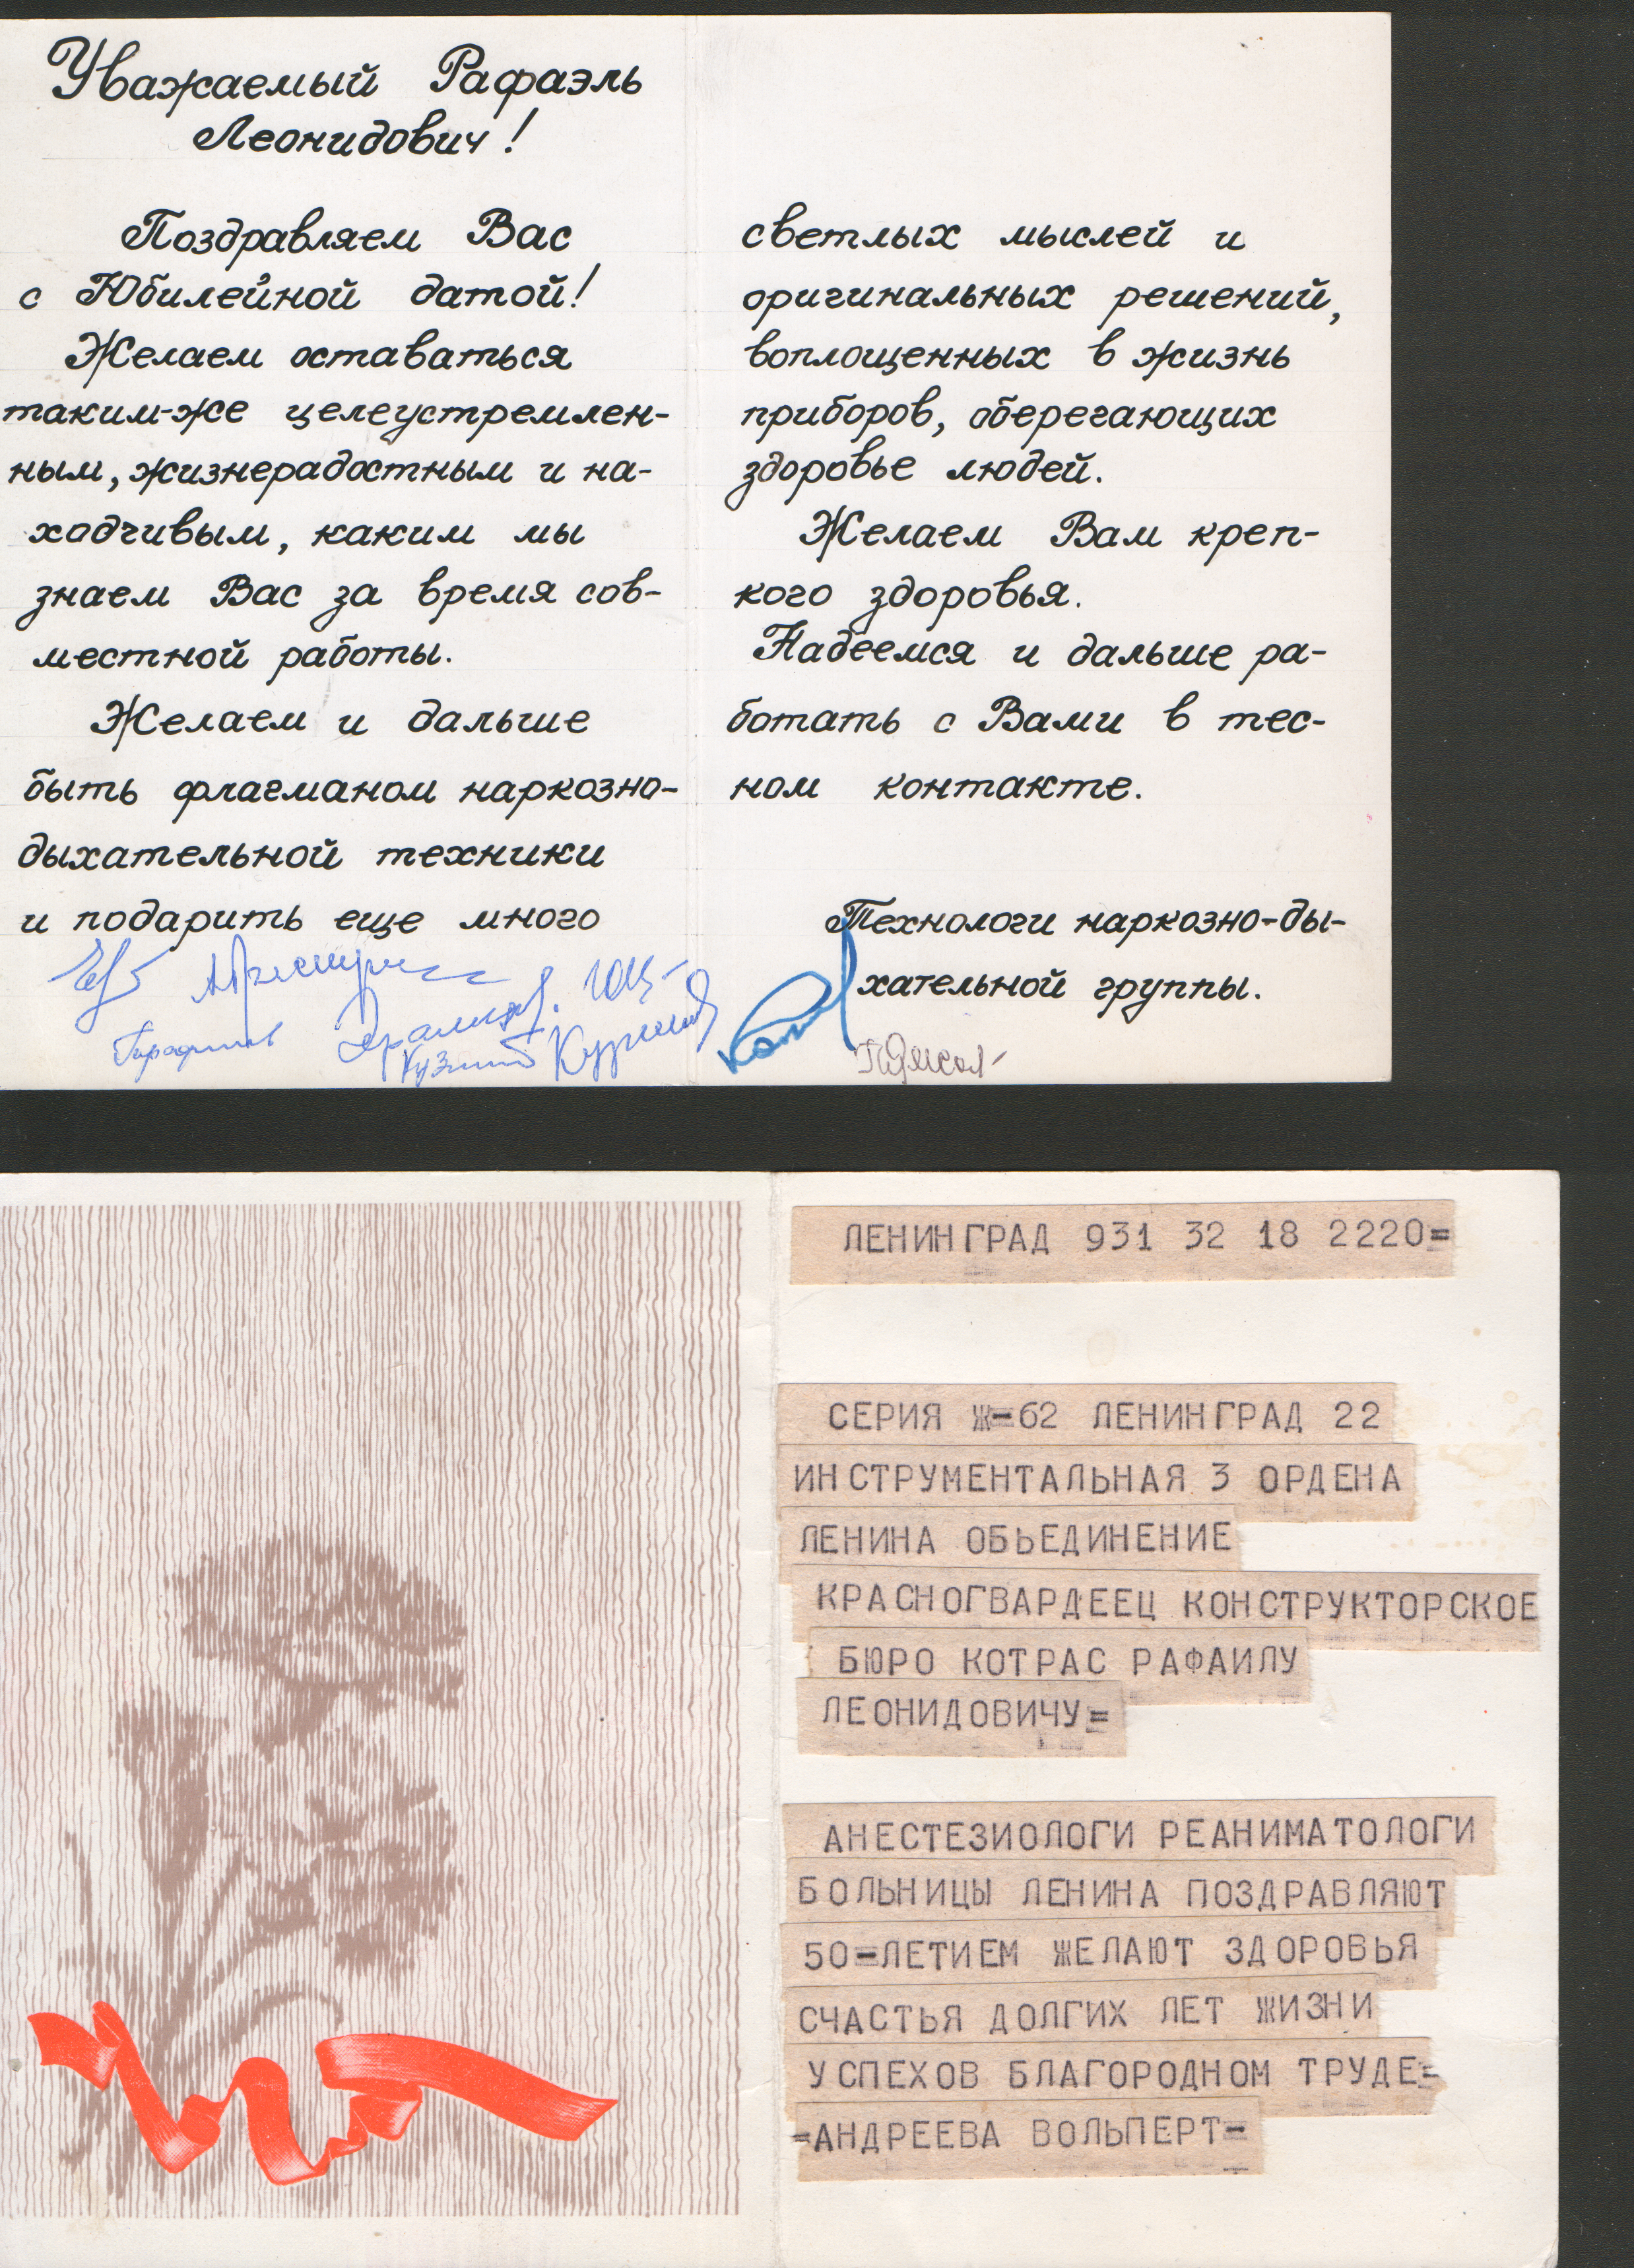 Уважаемый Рафаэль
Леонидович!
Поздравляем Вас
с Юбилейной датой!
Желаем оставаться
таким-же целеустремлен-
ным, жизнерадостным и на-
ходчивым, каким мы
знаем Вас за время сов-
местной работы.
Желаем и дальше
быть флагманом наркозно-
дыхательной техники
и подарить еще много
светлых мыслей и
оригинальных решений,
воплощенных в жизнь
приборов, оберегающих
здоровье людей.
Желаем Вам креп-
кого здоровья.
Надеемся и дальше ра-
ботать с Вами в тес-
ном контакте.
Технологи наркозно-ды-
хательной группы.
ЛЕНИНГРАД 931 32 18 2220=
СЕРИЯ Ж=62 ЛЕНИНГРАД 22
ИНСТРУМЕНТАЛЬНАЯ 3 ОРДЕНА
ЛЕНИНА ОБЬЕДИНЕНИЕ
КРАСНОГВАРДЕЕЦ КОНСТРУКТОРСКОЕ
БЮРО КОТРАС РАФАИЛУ
ЛЕОНИДОВИЧУ=
АНЕСТЕЗИОЛОГИ РЕАНИМАТОЛОГИ
БОЛЬНИЦЫ ЛЕНИНА ПОЗДРАВЛЯЮТ
50=ЛЕТИЕМ ЖЕЛАЮТ ЗДОРОВЬЯ
СЧАСТЬЯ ДОЛГИХ ЛЕТ ЖИЗНИ
УСПЕХОВ БЛАГОРОДНОМ ТРУДЕ=
=АНДРЕЕВА ВОЛЬПЕРТ=